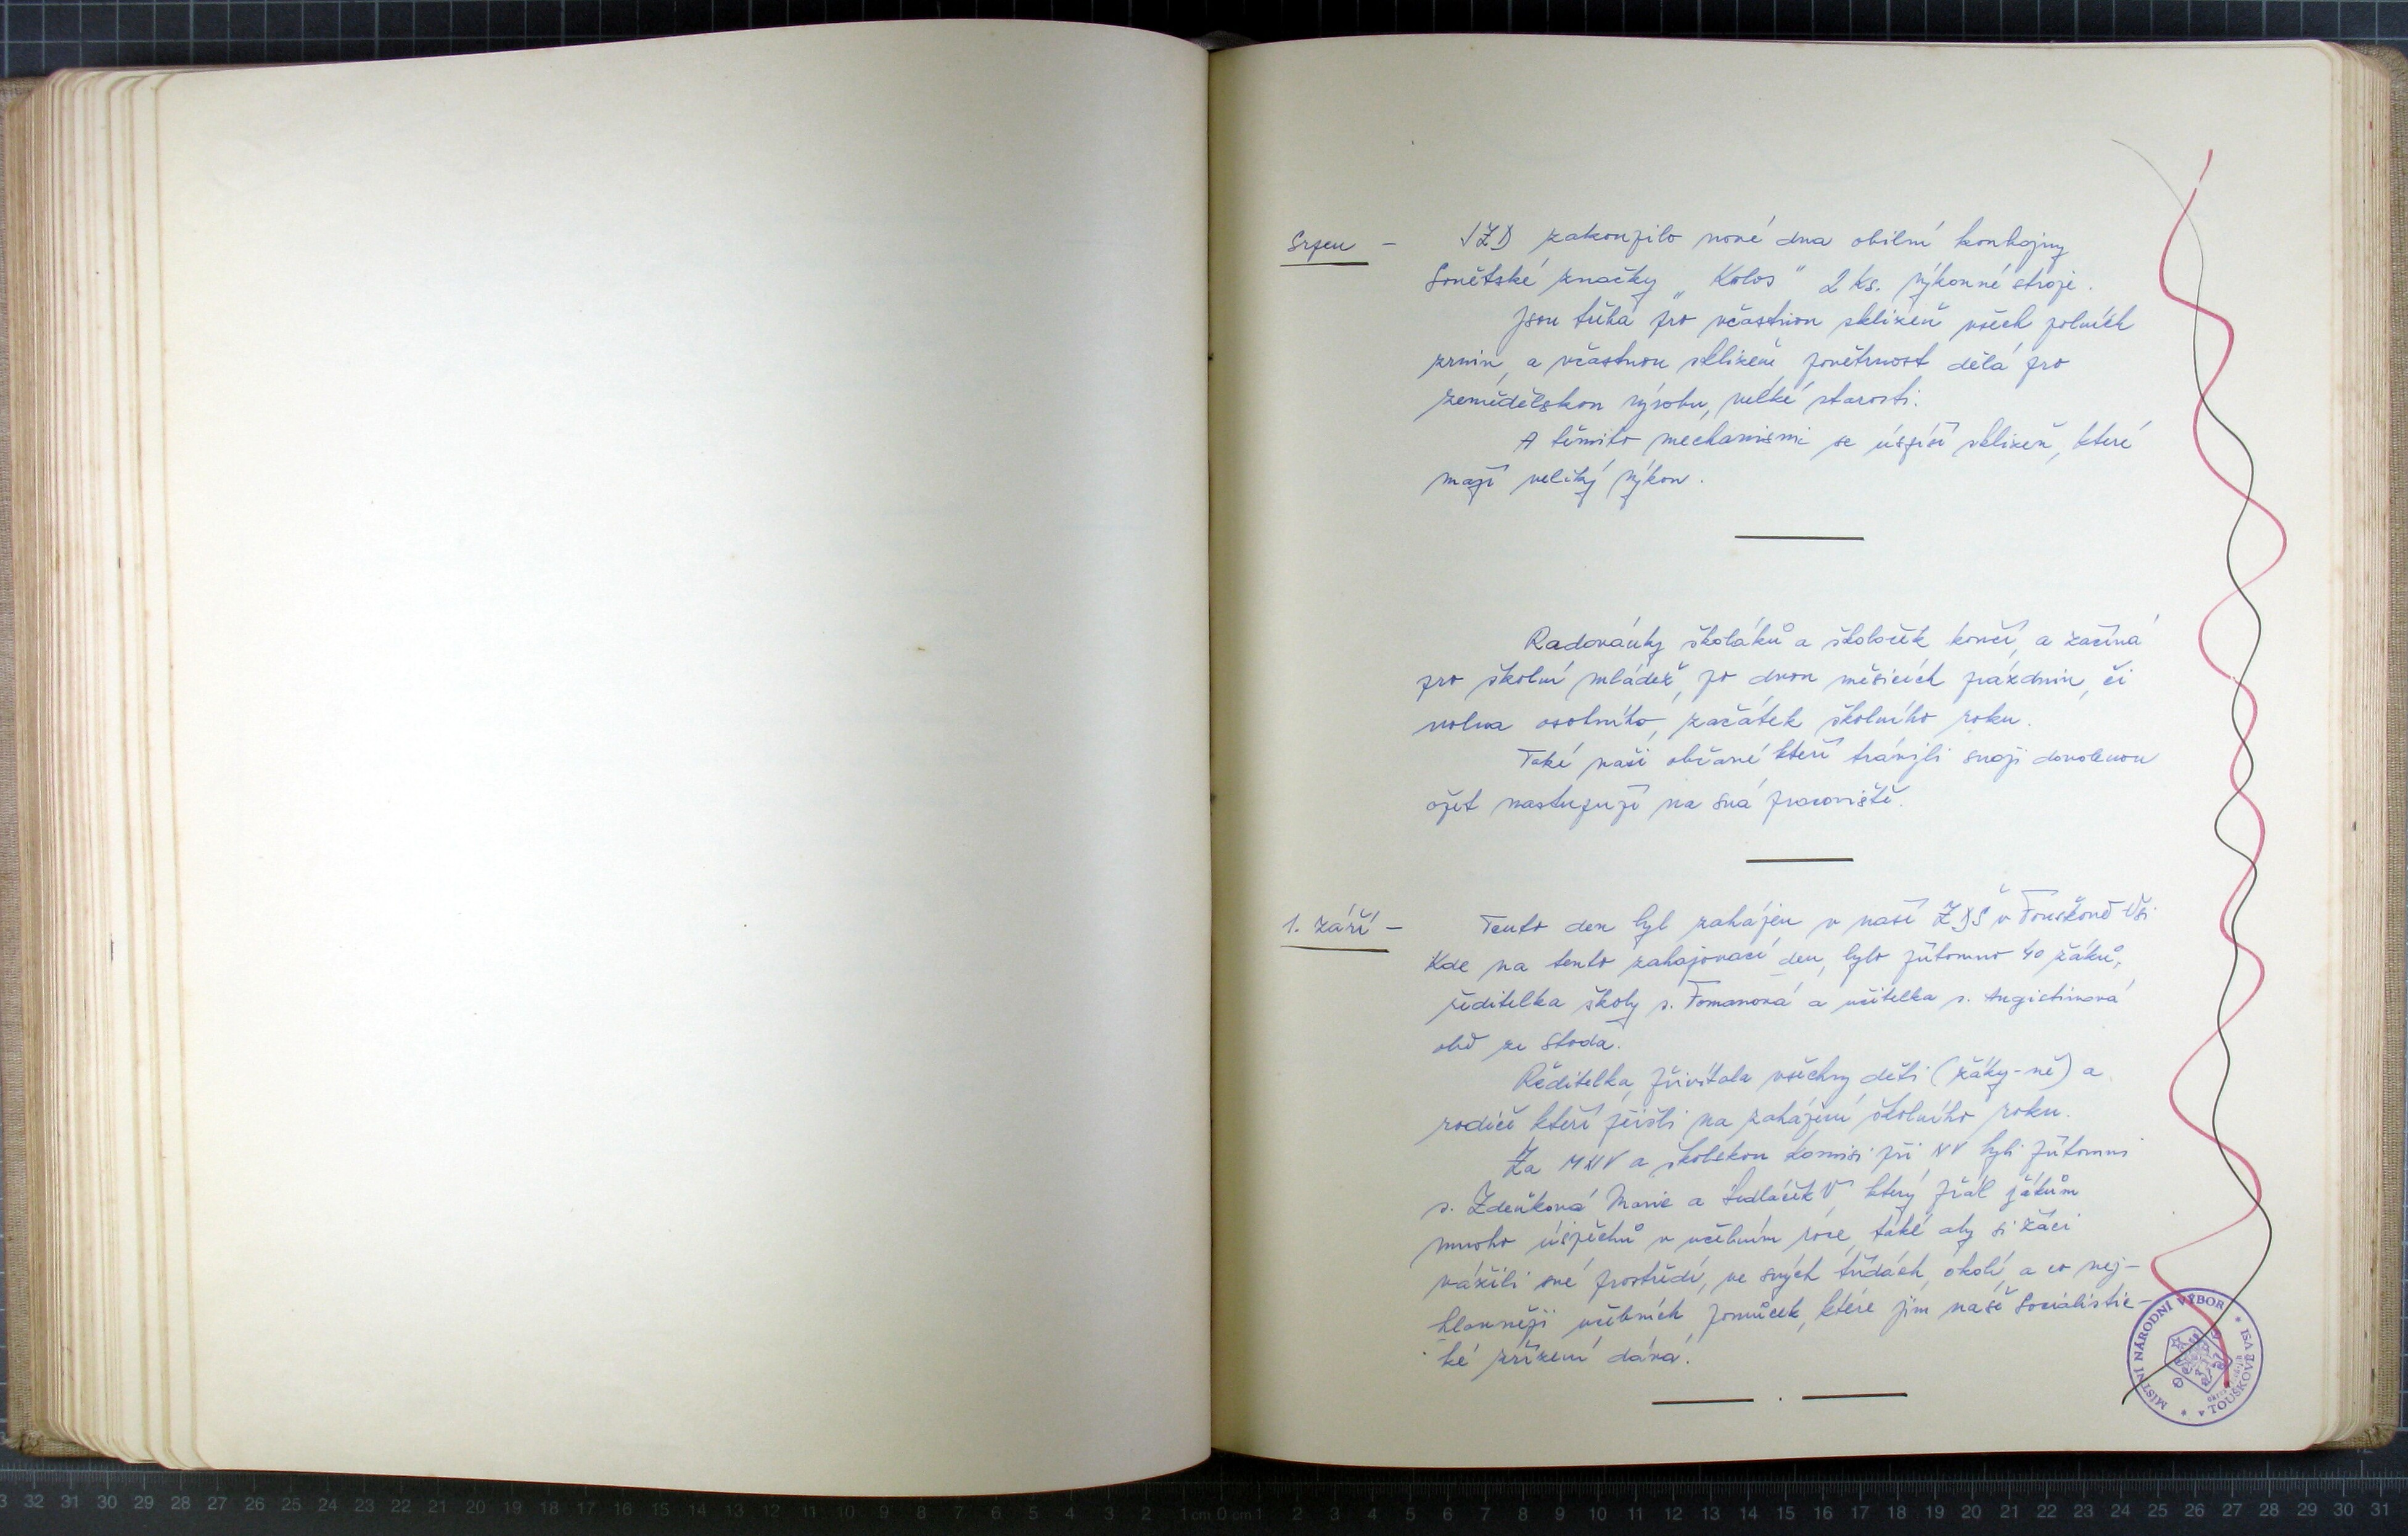 Srpen - JZD zakoupilo nové dva obilní kombajny
Sovětské značky „Kolos" 2 ks. výkonné stroje.
Jsou třeba pro včastnou sklizeň všech polních
zrnin, a včastnou sklizeň povětrnost dělá pro
zemědělskou výrobu, velké starosti.
A těmito mechanismi se úspíší sklizeň, které
mají veliký výkon.
Radovánky školáků a školaček končí, a začíná
pro školní mládež, po dvou měsících prázdnin, či
volna osobního, začátek školního roku.
Také naši občané kteří trávili svoji dovolenou
opět nastupují na svá pracoviště.
1. září - Tento den byl zahájen v naší ZDŠ v Touškově Vsi
Kde na tento zahajovací den, bylo přítomno 40 žáků,
ředitelka školy s. Tomanová a učitelka s.
obě ze Stoda.
Ředitelka, přivítala všechny děti (žáky-ně) a
rodiče kteří přišli na zahájení školního roku.
Za MNV a školskou komisi při NV byli přítomni
s. Zdeňková Marie a Sedláček V. který přál žákům
mnoho úspěchů v učebním roce, také aby si žáci
vážili své prostředí, ve svých třídách, okolí, a co nej-
hlavněji učebních pomůcek, které jim naše Socialistic-
ké zřízení dává.
MÍSTNÍ NÁRODNÍ VÝBOR * V TOUŠKOVĚ VSI *
32 31 30 29 28 27 26 25 24 23 22 21 20 19 18 17 16 15 14 13 12 11 10 9 8 7 6 5 4 3 2 1 cm 0 cm 1 2 3 4 5 6 7 8 9 10 11 12 13 14 15 16 17 18 19 20 21 22 23 24 25 26 27 28 29 30 31